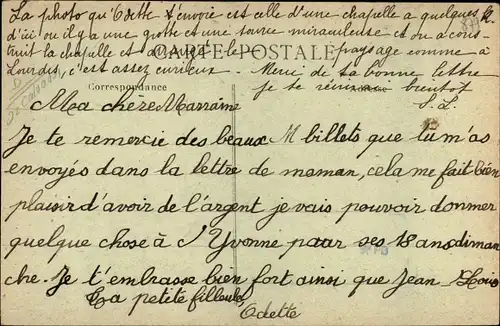 La photo qu'Odette t'envoie est celle d'une chapelle a quelques
d'ici ou il y a une grotte et une source miraculeuse et on a cons-
truit la chapelle et le paysage comme à
CARTE POSTALE
Lourdes, c'est assez curieux. Merci de ta bonne lettre
je te bientot
S. L.
Correspondance
Ma chère Marraine
Je te remercie des beaux billets que tu m'as
envoyés dans la lettre de maman, cela me fait bien
plaisir d'avoir de l'argent je vais pouvoir donner
quelque chose à l'Yvonne pour ses 18 ans diman
che. Je t'embrasse bien fort ainsi que Jean-
Ta petite filleule,
Odette